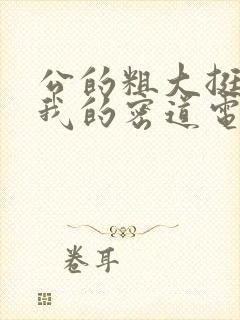 公的粗大挺
我的密道电
卷耳